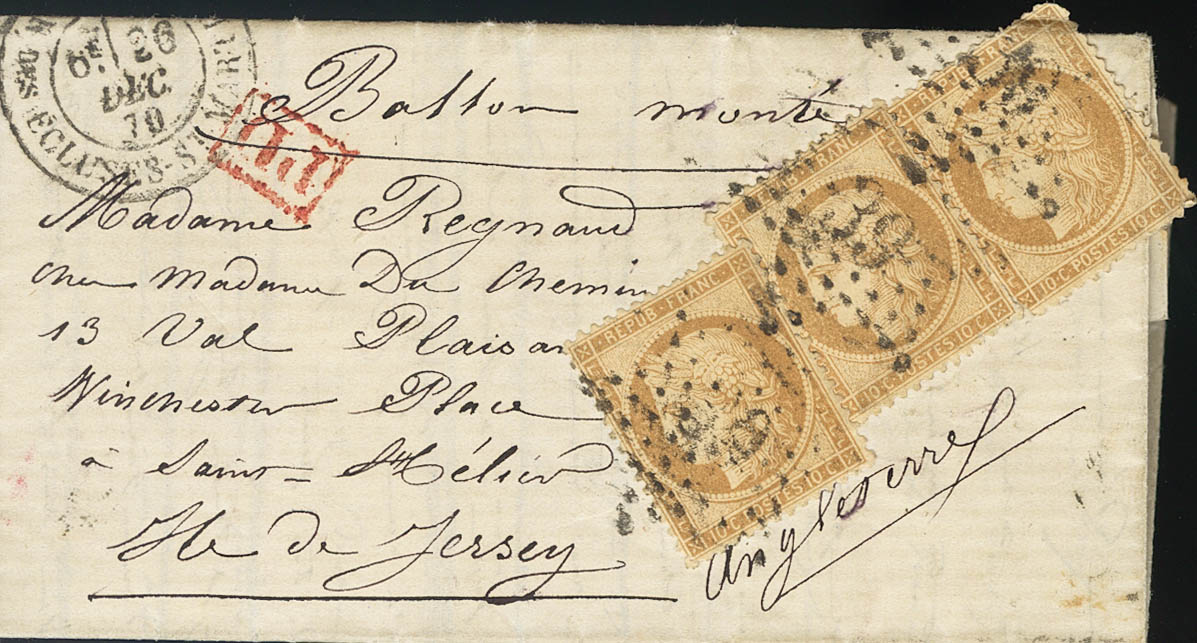 26
DEC.
70
ECLUSES-ST-MART
P.P.
Ballon monté
Madame Regnaud
chez Madame Du Chemin
13 Val Plaisan
Winchester Place
à Saint-Hélier
Ile de Jersey
Angleterre
REPUB. FRANC.
10.C. POSTES.10.C.
REPUB. FRANC.
10.C. POSTES.10.C.
REPUB. FRANC.
10.C. POSTES.10.C.